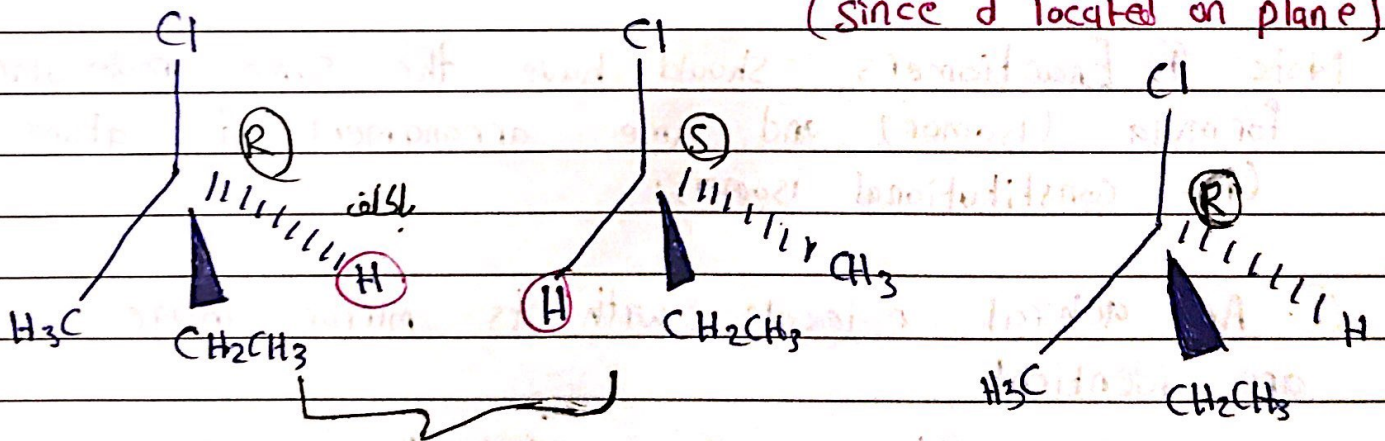 (since d located on plane)
Cl
R
H
H3C
CH2CH3
Cl
S
CH3
H
CH2CH3
Cl
R
H
H3C
CH2CH3